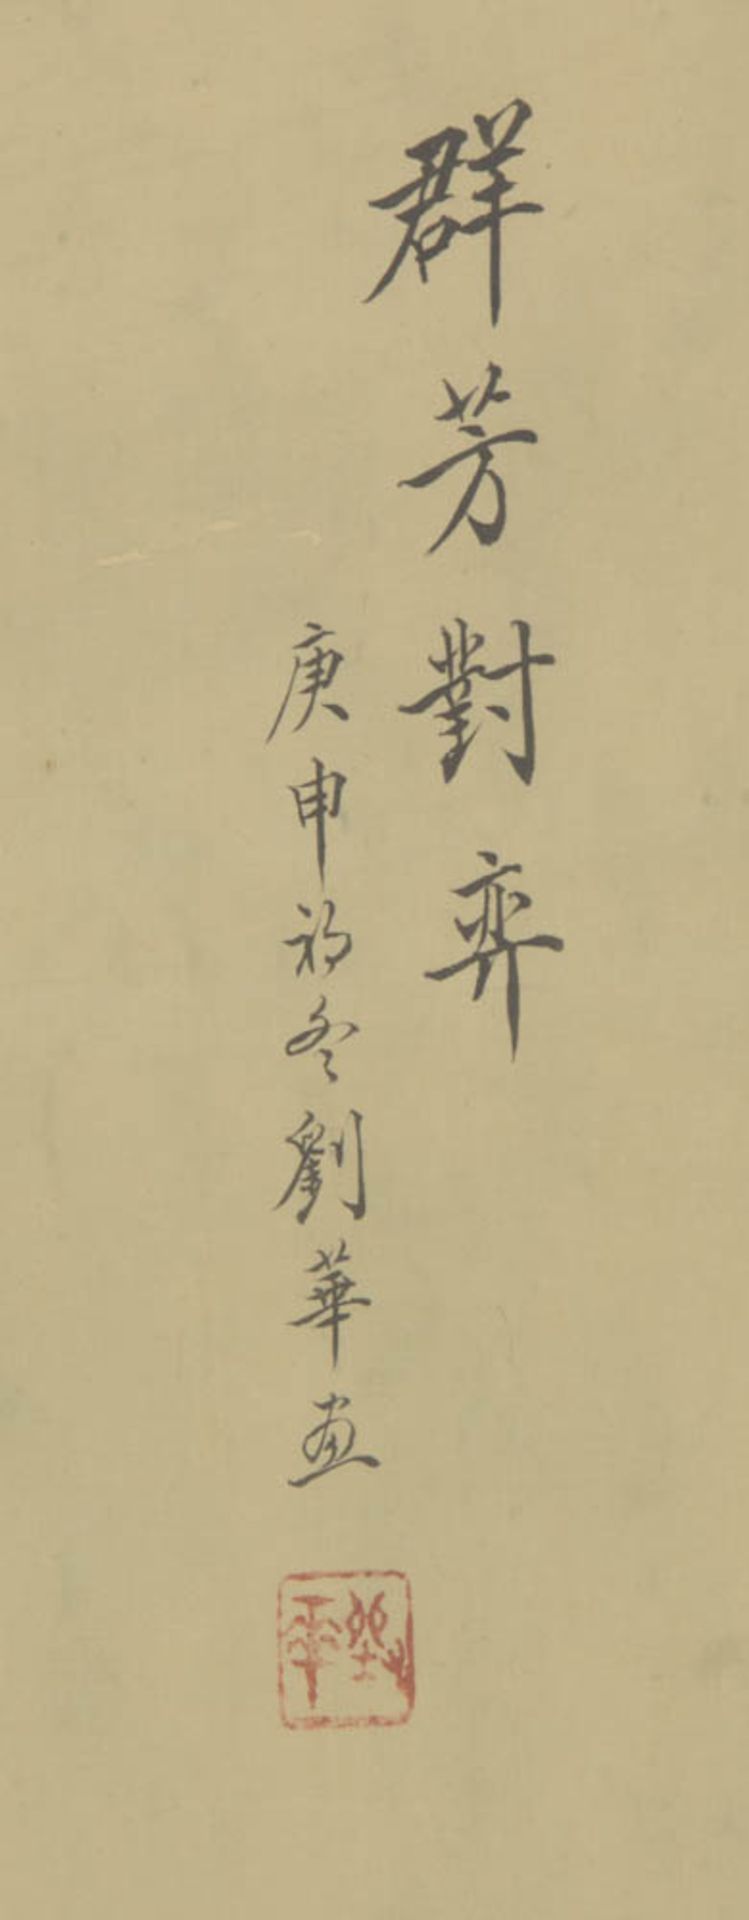 群芳對弈
庚申初冬劉華画
劉華